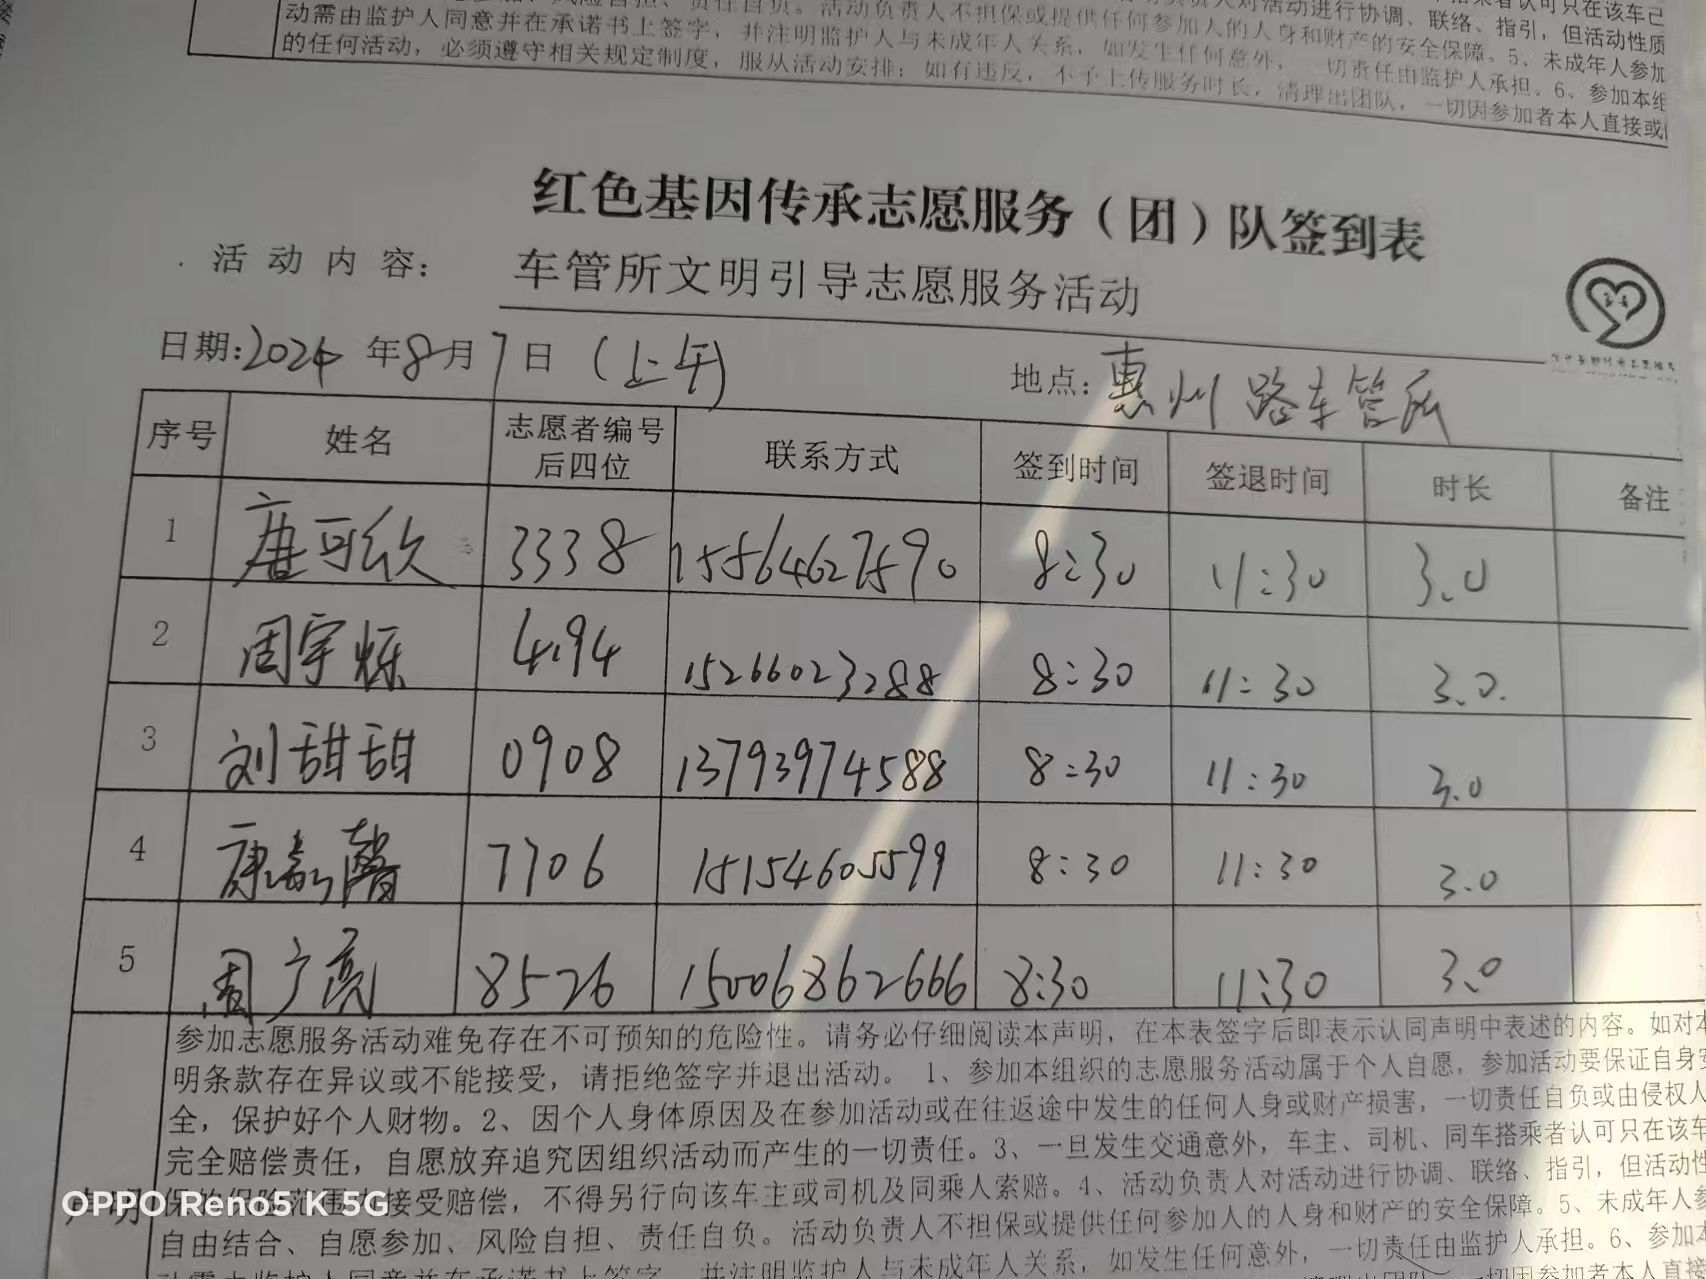 动需由监护人同意并在承诺书上签字，并注明监护人与未成年人关系，如发生任何意外，一切责任由监护人承担。6、参加本组
的任何活动，必须遵守相关规定制度，服从活动安排；如有违反，不予上传服务时长，清理出团队，一切因参加者本人直接或
红色基因传承志愿服务（团）队签到表
活动内容： 车管所文明引导志愿服务活动
日期：2024年8月7日（上午） 地点：惠州路车管所
序号 姓名 志愿者编号后四位 联系方式 签到时间 签退时间 时长 备注
1 唐可欣 3338 15564627590 8:30 11:30 3.0
2 周宇烁 4194 15266023288 8:30 11:30 3.0.
3 刘甜甜 0908 13793974588 8:30 11:30 3.0
4 康嘉馨 7706 15154605599 8:30 11:30 3.0
5 周广亮 8526 15006862666 8:30 11:30 3.0
参加志愿服务活动难免存在不可预知的危险性。请务必仔细阅读本声明，在本表签字后即表示认同声明中表述的内容。如对本
明条款存在异议或不能接受，请拒绝签字并退出活动。1、参加本组织的志愿服务活动属于个人自愿，参加活动要保证自身安
全，保护好个人财物。2、因个人身体原因及在参加活动或在往返途中发生的任何人身或财产损害，一切责任自负或由侵权人
完全赔偿责任，自愿放弃追究因组织活动而产生的一切责任。3、一旦发生交通意外，车主、司机、同车搭乘者认可只在该车
接受赔偿，不得另行向该车主或司机及同乘人索赔。4、活动负责人对活动进行协调、联络、指引，但活动性
自由结合、自愿参加、风险自担、责任自负。活动负责人不担保或提供任何参加人的人身和财产的安全保障。5、未成年人参
并注明监护人与未成年人关系，如发生任何意外，一切责任由监护人承担。6、参加本
OPPO Reno5 K 5G